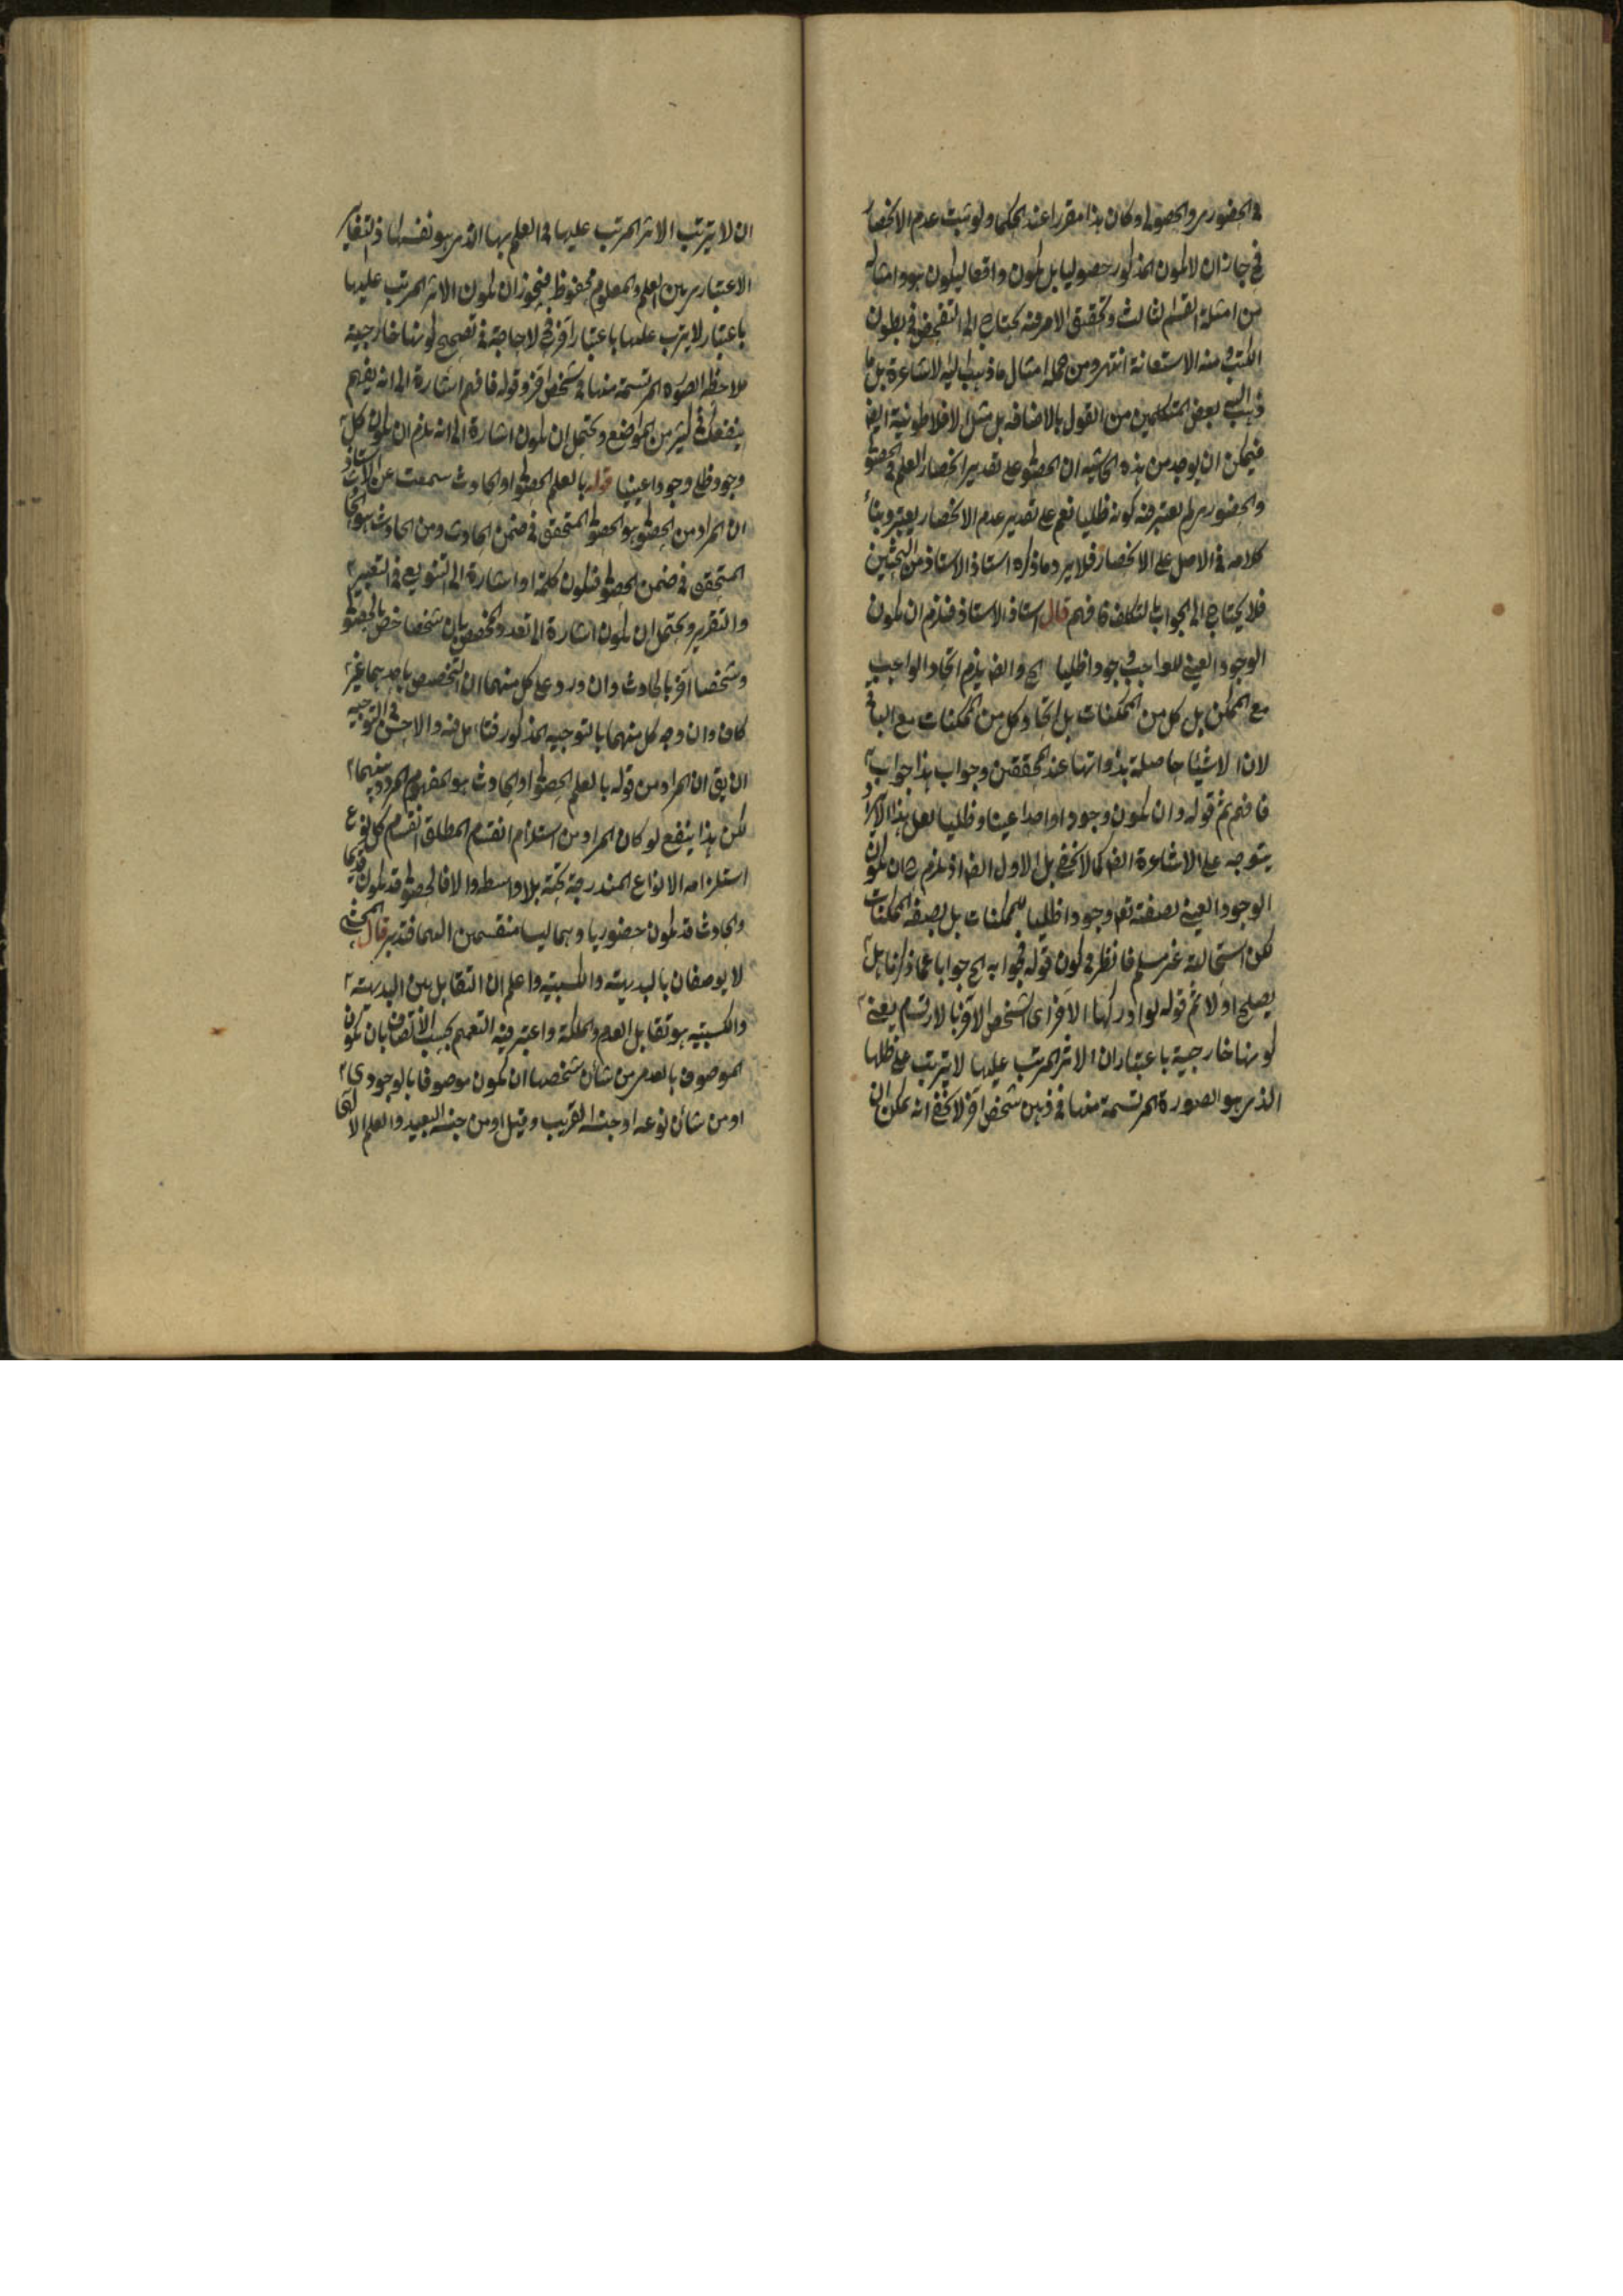 في الحضوري والحصولي وكان هذا مقررا عند الحكما ولو ثبت عدم الانحصار
فح جاز ان لا يكون المذكور حصوليا بل يكون واقعا ليكون هو وامثاله
من امثلة القسم الثالث وتحقيق الامر فيه يحتاج الى التفحص في بطون
الكتب منه الاستعانة انتهى ومن جملة امثال ما ذهب اليه الاشاعرة بل ما
ذهب اليه بعض المتكلمين من القول بالاضافة بل مثل الافلاطونية ايضا
فيمكن ان يوجد من هذه الحاشية ان الحصولي على تقدير انحصار العلم في الحصولي
والحضوري لم يعتبر فيه كونه ظليا نعم على تقدير عدم الانحصار يعتبر وبناء
كلامه في الاصل على الانحصار فلا يرد ما ذكره استاذ الاستاذ من البحثين
فلا يحتاج الى الجواب بالتكلف فافهم قال استاذ الاستاذ فيلزم ان يكون
الوجود العيني للواجب وجودا ظليا الخ وايضا يلزم اتحاد الواجب
مع الممكن بل كل من الممكنات بل اتحاد كل من الممكنات مع الباقي
لان الاشيا حاصلة بذواتها عند المحققين وجواب هذا جوابه
فافهم ثم قوله وان يكون وجودا واحدا عينا وظليا لعل هذا الايراد
يتوجه على الاشاعرة ايضا كما لا يخفى بل الاول ايضا اذ يلزم ح ان يكون
الوجود العيني لصفته تعالى وجودا ظليا للممكنات بل لصفة الممكنات
لكن استحالته غير مسلم فانظر في كون قوله فجوابه الخ جوابا عما ذكرنا هل
يصلح اولا ثم قوله لو ادركها الاخر اي الشخص الاخر بالارتسام يعني
كونها خارجية باعتبار ان الاثر المرتب عليها لا يترتب على ظلها
الذي هو الصورة المرتسمة منها في ذهن شخص اخر لا يخفى انه يمكن ان
ان لا يترتب الاثر المرتب عليها في العلم بها الذي هو نفسها اذ التغاير
الاعتباري بين العلم والمعلوم محفوظ فيجوز ان يكون الاثر المرتب عليها
باعتبار لا يترتب عليها باعتبار آخر فح لا حاجة في تصحيح كونها خارجية
ملاحظة الصورة المرتسمة منها في شخص اخر وقوله فافهم اشارة الى انه يفهم
ينفعك في كثير من المواضع ويحتمل ان يكون اشارة الى انه يلزم ان يكون كل
وجود ظلي وجودا عينيا قوله بالعلم الحصولي او الحادث سمعت عن الاستاذ
ان المراد من الحصولي هو الحصولي المتحقق في ضمن الحادث ومن الحادث هو الحادث
المتحقق في ضمن الحصولي فيكون كلمة او اشارة الى التنويع في التعبير
والتقرير ويحتمل ان يكون اشارة الى تعدد المخصص بان شخصا خص بالحصولي
وشخصا آخر بالحادث وان ورد على كل منهما ان التخصيص باحدهما غير
كاف وان وجه كل منهما بالتوجيه المذكور فتامل فيه والاحسن في التوجيه
ان يق ان المراد من قوله بالعلم الحصولي او الحادث هو المفهوم المردد بينهما
لكن هذا ينفع لو كان المراد من استلزام انقسام المطلق انقسام كل نوع
استلزامه الانواع المندرجة تحته بلا واسطه والا فالحصولي قد يكون قديما
والحادث قد يكون حضوريا وهما ليسا منقسمين اليهما فتدبر قال المحشي
لا يوصفان بالبديهية والكسبية واعلم ان التقابل بين البديهية
والكسبية هو تقابل العدم والملكة واعتبر فيه التعميم بحسب الاتصاف بان يكون
الموصوف بالعدمي من شأن شخصها ان يكون موصوفا بالوجودي
او من شأن نوعه او جنسه القريب وقيل او من جنسه البعيد والعلم